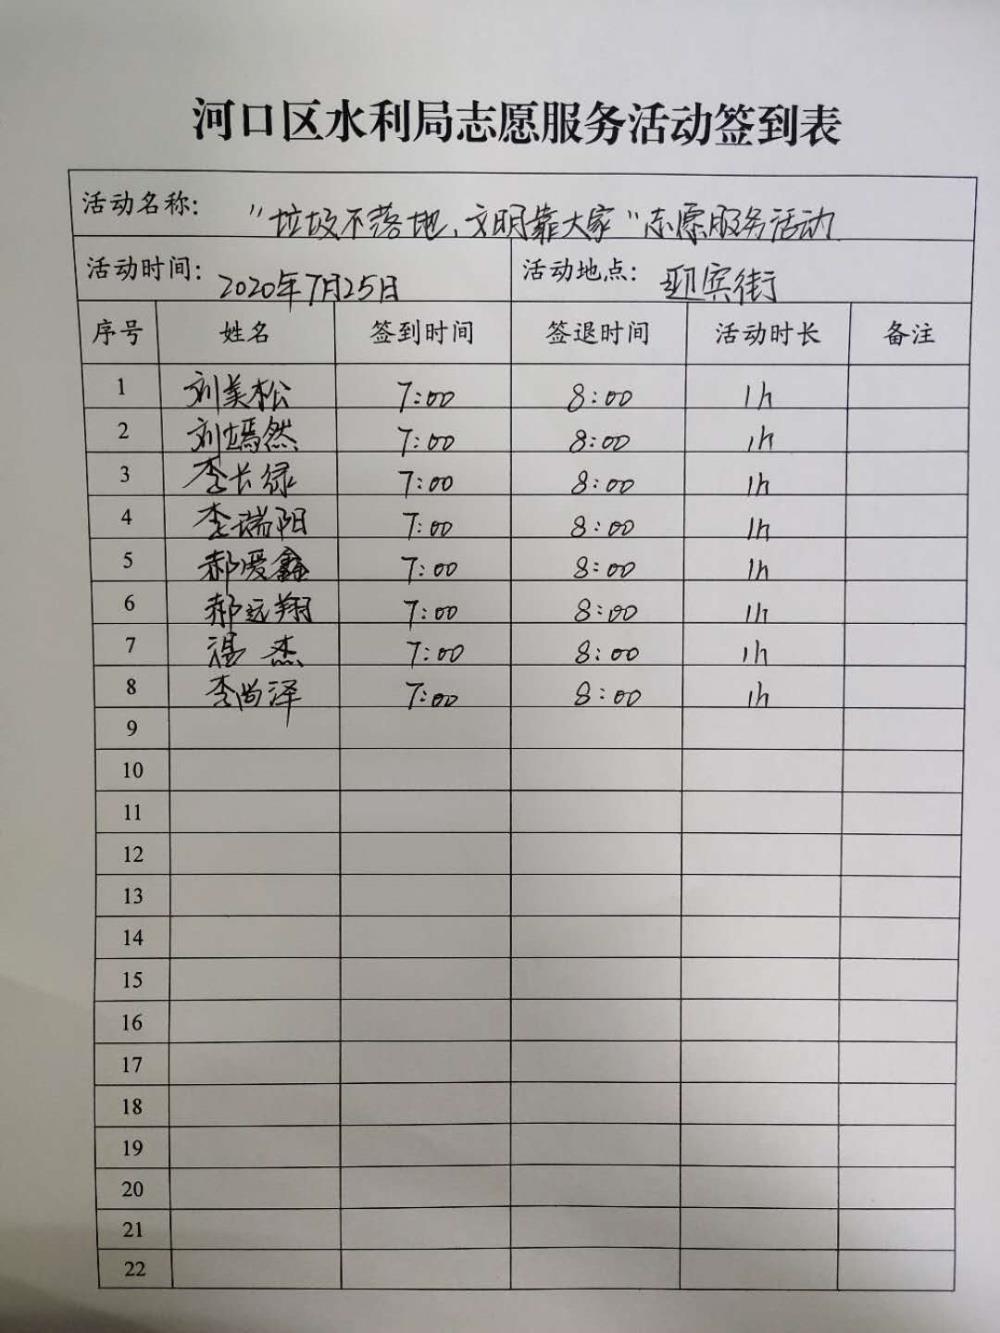 河口区水利局志愿服务活动签到表
活动名称： “垃圾不落地、文明靠大家”志愿服务活动
活动时间： 2020年7月25日 活动地点： 迎宾街
序号 姓名 签到时间 签退时间 活动时长 备注
1 刘美松 7:00 8:00 1h
2 刘嫣然 7:00 8:00 1h
3 李长绿 7:00 8:00 1h
4 李瑞阳 7:00 8:00 1h
5 郝爱鑫 7:00 8:00 1h
6 郝远翔 7:00 8:00 1h
7 杰 7:00 8:00 1h
8 李尚泽 7:00 8:00 1h
9
10
11
12
13
14
15
16
17
18
19
20
21
22